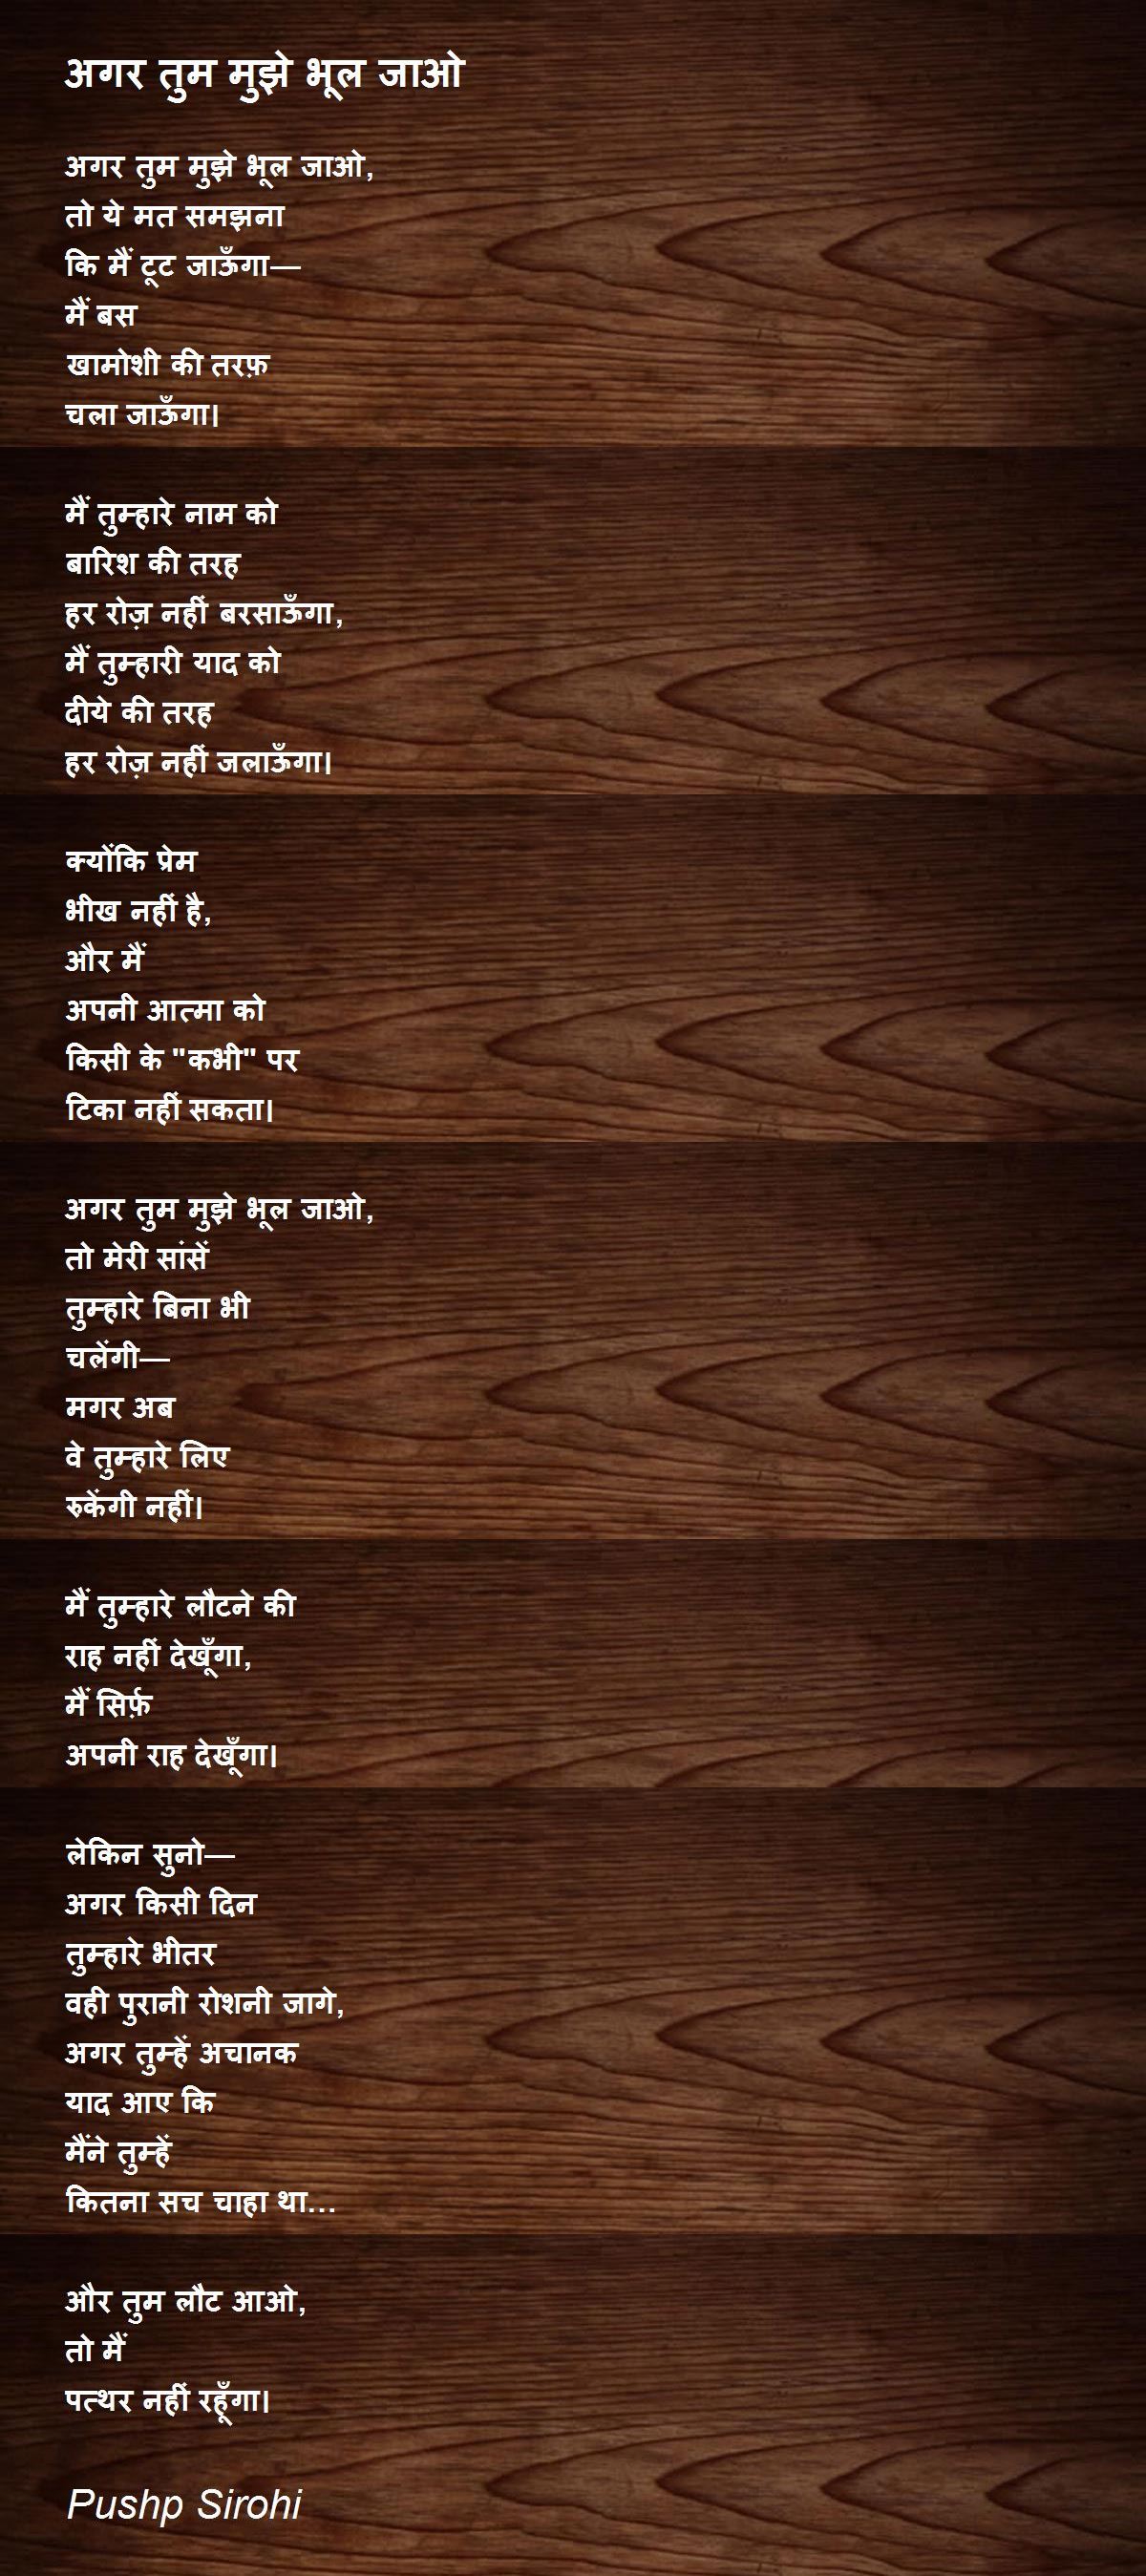 अगर तुम मुझे भूल जाओ
अगर तुम मुझे भूल जाओ,
तो ये मत समझना
कि मैं टूट जाऊँगा—
मैं बस
खामोशी की तरफ़
चला जाऊँगा।
मैं तुम्हारे नाम को
बारिश की तरह
हर रोज़ नहीं बरसाऊँगा,
मैं तुम्हारी याद को
दीये की तरह
हर रोज़ नहीं जलाऊँगा।
क्योंकि प्रेम
भीख नहीं है,
और मैं
अपनी आत्मा को
किसी के "कभी" पर
टिका नहीं सकता।
अगर तुम मुझे भूल जाओ,
तो मेरी सांसें
तुम्हारे बिना भी
चलेंगी—
मगर अब
वे तुम्हारे लिए
रुकेंगी नहीं।
मैं तुम्हारे लौटने की
राह नहीं देखूँगा,
मैं सिर्फ़
अपनी राह देखूँगा।
लेकिन सुनो—
अगर किसी दिन
तुम्हारे भीतर
वही पुरानी रोशनी जागे,
अगर तुम्हें अचानक
याद आए कि
मैंने तुम्हें
कितना सच चाहा था...
और तुम लौट आओ,
तो मैं
पत्थर नहीं रहूँगा।
Pushp Sirohi